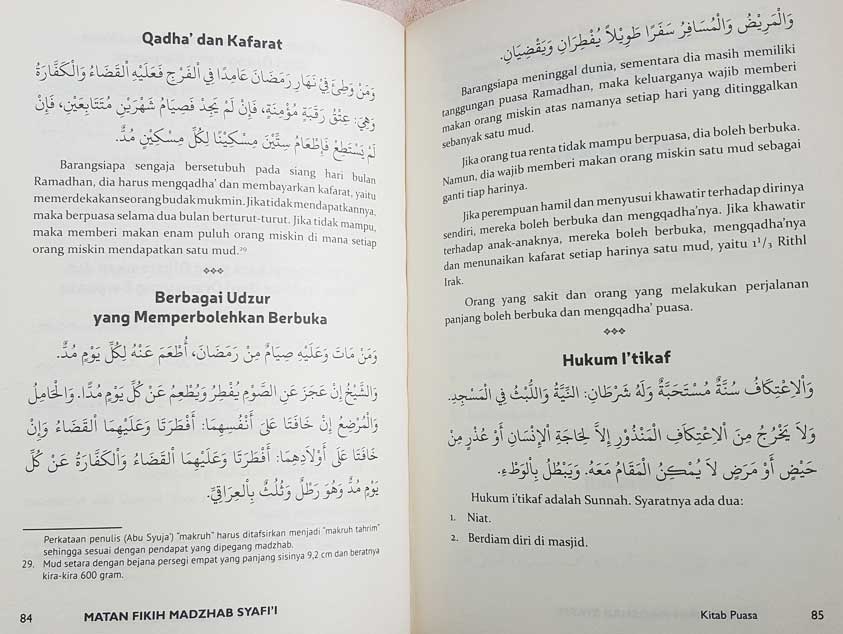 Qadha' dan Kafarat
وَمَنْ وَطِئَ فِيْ نَهَارِ رَمَضَانَ عَامِدًا فِي اَلْفَرْجِ فَعَلَيْهِ اَلْقَضَاءُ وَالْكَفَّارَةُ
وَهِيَ: عِتْقُ رَقَبَةٍ مُؤْمِنَةٍ، فَإِنْ لَمْ يَجِدْ فَصِيَامُ شَهْرَيْنِ مُتَتَابِعَيْنِ، فَإِنْ
لَمْ يَسْتَطِعْ فَإِطْعَامُ سِتِّيْنَ مِسْكِيْنًا لِكُلِّ مِسْكِيْنٍ مُدٌّ.
Barangsiapa sengaja bersetubuh pada siang hari bulan
Ramadhan, dia harus mengqadha' dan membayarkan kafarat, yaitu
memerdekakan seorang budak mukmin. Jika tidak mendapatkannya,
maka berpuasa selama dua bulan berturut-turut. Jika tidak mampu,
maka memberi makan enam puluh orang miskin di mana setiap
orang miskin mendapatkan satu mud.²⁹
Berbagai Udzur
yang Memperbolehkan Berbuka
وَمَنْ مَاتَ وَعَلَيْهِ صِيَامٌ مِنْ رَمَضَانَ، أُطْعِمَ عَنْهُ لِكُلِّ يَوْمٍ مُدٌّ.
وَالشَّيْخُ إِنْ عَجَزَ عَنِ الصَّوْمِ يُفْطِرُ وَيُطْعِمُ عَنْ كُلِّ يَوْمٍ مُدًّا. وَالْحَامِلُ
وَالْمُرْضِعُ إِنْ خَافَتَا عَلَى أَنْفُسِهِمَا: أَفْطَرَتَا وَعَلَيْهِمَا اَلْقَضَاءُ وَإِنْ
خَافَتَا عَلَى أَوْلَادِهِمَا: أَفْطَرَتَا وَعَلَيْهِمَا اَلْقَضَاءُ وَاَلْكَفَّارَةُ عَنْ كُلِّ
يَوْمٍ مُدٌّ وَهُوَ رَطْلٌ وَثُلُثٌ بِالْعِرَاقِيِّ.
Perkataan penulis (Abu Syuja') "makruh" harus ditafsirkan menjadi "makruh tahrim"
sehingga sesuai dengan pendapat yang dipegang madzhab.
29. Mud setara dengan bejana persegi empat yang panjang sisinya 9,2 cm dan beratnya
kira-kira 600 gram.
84 MATAN FIKIH MADZHAB SYAFI'I
وَالْمَرِيْضُ وَالْمُسَافِرُ سَفَرًا طَوِيْلاً يُفْطِرَانِ وَيَقْضِيَانِ.
Barangsiapa meninggal dunia, sementara dia masih memiliki
tanggungan puasa Ramadhan, maka keluarganya wajib memberi
makan orang miskin atas namanya setiap hari yang ditinggalkan
sebanyak satu mud.
Jika orang tua renta tidak mampu berpuasa, dia boleh berbuka.
Namun, dia wajib memberi makan orang miskin satu mud sebagai
ganti tiap harinya.
Jika perempuan hamil dan menyusui khawatir terhadap dirinya
sendiri, mereka boleh berbuka dan mengqadha'nya. Jika khawatir
terhadap anak-anaknya, mereka boleh berbuka, mengqadha'nya
dan menunaikan kafarat setiap harinya satu mud, yaitu 1¹/₃ Rithl
Irak.
Orang yang sakit dan orang yang melakukan perjalanan
panjang boleh berbuka dan mengqadha' puasa.
Hukum I'tikaf
وَاْلاِعْتِكَافُ سُنَّةٌ مُسْتَحَبَّةٌ وَلَهُ شَرْطَانِ: النِّيَّةُ وَاللُّبْثُ فِي الْمَسْجِدِ.
وَلاَ يَخْرُجُ مِنَ اْلاِعْتِكَافِ الْمَنْذُوْرِ إِلاَّ لِحَاجَةِ اْلإِنْسَانِ أَوْ عُذْرٍ مِنْ
حَيْضٍ أَوْ مَرَضٍ لاَ يُمْكِنُ الْمَقَامُ مَعَهُ. وَيَبْطُلُ بِالْوَطْءِ.
Hukum i'tikaf adalah Sunnah. Syaratnya ada dua:
1. Niat.
2. Berdiam diri di masjid.
Kitab Puasa 85